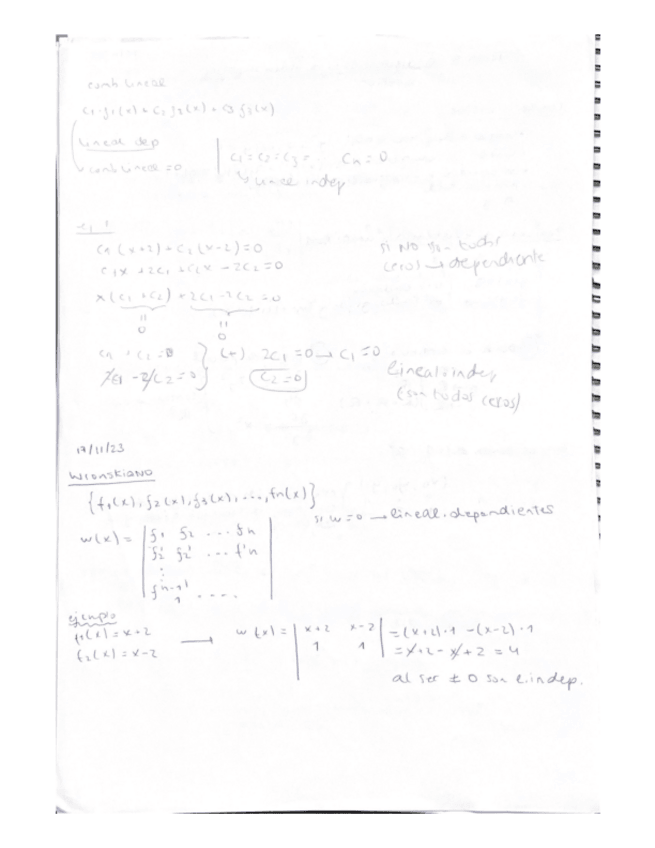 comb lineal
c1·f1(x)+c2 f2(x)+c3 f3(x)
lineal dep
comb lineal =0
c1=c2=c3= cn=0
↳ lineal indep
c1(x+2)+c2(x-2)=0
c1x+2c1+c2x-2c2=0
x(c1+c2)+2c1-2c2=0
" "
0 0
si NO son todos
ceros → dependiente
c1+c2=0 } (+) 2c1=0 → c1=0
2c1-2c2=0 } c2=0
lineal.indep
(son todos ceros)
17/11/23
WronskiaNO
{f1(x), f2(x), f3(x), ..., fn(x)}
si w=0 → lineal.dependientes
w(x)= | f1 f2 ... fn |
f1' f2' ... f'n
⋮
f1^n-1 .....
ejemplo
f1(x)=x+2 → w(x)= | x+2 x-2 | =(x+2)·1-(x-2)·1
f2(x)=x-2 1 1 =x+2-x+2=4
al ser ≠ 0 son l.indep.